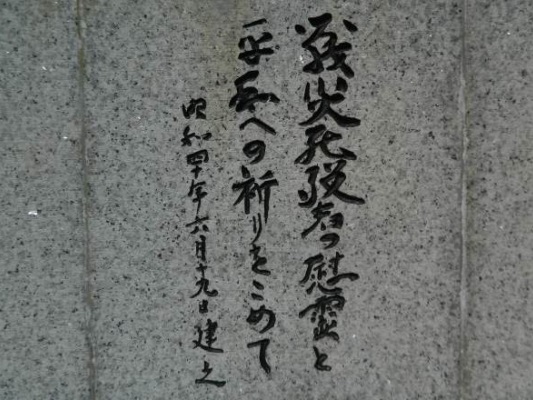 戦災死歿者の慰霊と
平和への祈りをこめて
昭和四十年六月十九日建之